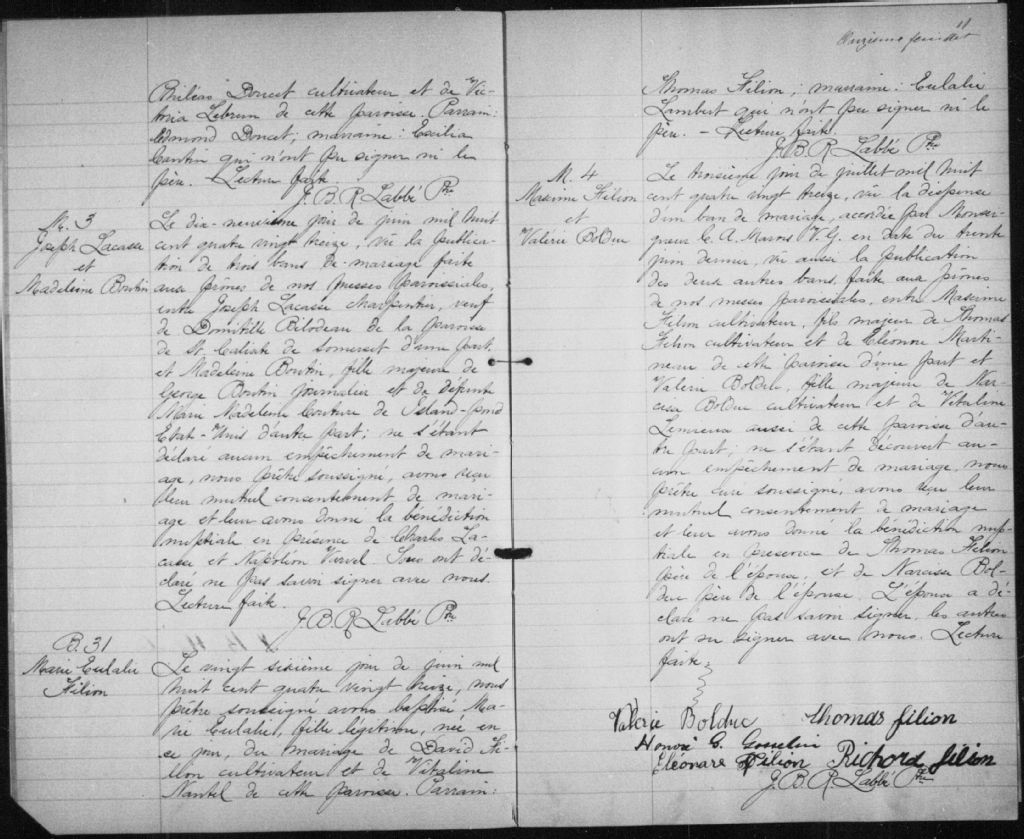 Philéas Doucet cultivateur et de Vic-
toria Lebrun de cette paroisse. Parrain:
Edmond Doucet; marraine: Exilia
Cantin qui n'ont pu signer ni le
père. - Lecture faite.
J. B. R. Labbé Ptre
M. 3
Joseph Lacasse
et
Madeleine Boutin
Le dix-neuvième jour de juin mil huit
cent quatre vingt treize, vu la publica-
tion de trois bans de mariage faite
aux prônes de nos messes paroissiales,
entre Joseph Lacasse charpentier, veuf
de Domitille Bilodeau de la paroisse
de St Calixte de Somerset d'une part,
et Madeleine Boutin, fille majeure de
George Boutin journalier et de défunte
Marie Madeleine Couture de Island-pond
Etat-Unis d'autre part; ne s'étant
déclaré aucun empêchement de mari-
age, nous prêtre soussigné, avons reçu
leur mutuel consentement de mari-
age et leur avons donné la bénédiction
nuptiale en présence de Charles La-
casse et Napoléon . Tous ont dé-
claré ne pas savoir signer avec nous.
Lecture faite.
J. B. R. Labbé Ptre
B. 31
Marie Eulalie
Filion
Le vingt sixième jour de juin mil
huit cent quatre vingt treize, nous
prêtre soussigné avons baptisé Ma-
rie Eulalie, fille légitime, née en
ce jour, du mariage de David Fi-
lion cultivateur et de Vitaline
Nantel de cette paroisse. Parrain:
11
Onzième feuillet
Thomas Filion; marraine: Eulalie
Lambert qui n'ont pu signer ni le
père. - Lecture faite.
J. B. R. Labbé Ptre
M. 4
Maxime Filion
et
Valérie Bolduc
Le troisième jour de juillet mil huit
cent quatre vingt treize, vu la dispense
d'un ban de mariage, accordée par Monsei-
gneur C. A. Marois V. G. en date du trente
juin dernier, vu aussi la publication
des deux autres bans faite aux prônes
de nos messes paroissiales, entre Maxime
Filion cultivateur, fils majeur de Thomas
Filion cultivateur et de Eléonore Marti-
neau de cette paroisse d'une part et
Valérie Bolduc, fille majeure de Nar-
cisse Bolduc cultivateur et de Vitaline
Lemieux aussi de cette paroisse d'au-
tre part; ne s'étant découvert au-
cun empêchement de mariage, nous
prêtre curé soussigné, avons reçu leur
mutuel consentement à mariage
et leur avons donné la bénédiction nup-
tiale en présence de Thomas Filion
père de l'époux, et de Narcisse Bol-
duc père de l'épouse. L'époux a dé-
claré ne pas savoir signer, les autres
ont su signer avec nous. Lecture
faite.
Valérie Bolduc Thomas filion
Honoré G. Gosselin
Eléonare Filion Richord filion
J. B. R. Labbé Ptre